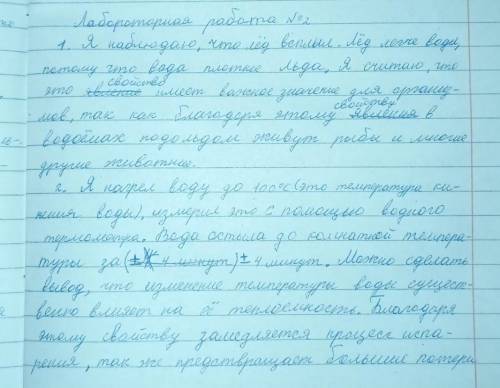 Лабораторная работа №2
1. Я наблюдаю, что лёд всплыл. Лёд легче воды,
потому что вода плотнее льда, Я считаю, что
это явление свойство имеет важное значение для организ-
мов, так как благодаря этому явлению свойству в
водоёмах подольдом живут рыбы и многие
другие животные.
2. Я нагрел воду до 100°С (это температура ки-
пения воды), измерил это с помощью водного
термометра. Вода остыла до комнатной темпера-
туры за (± 4 минут) ± 4 минут. Можно сделать
вывод, что изменение температуры воды сущест-
венно влияет на её теплоёмкость. Благодаря
этому свойству замедляется процесс испа-
рения, так же предствращает большие потери